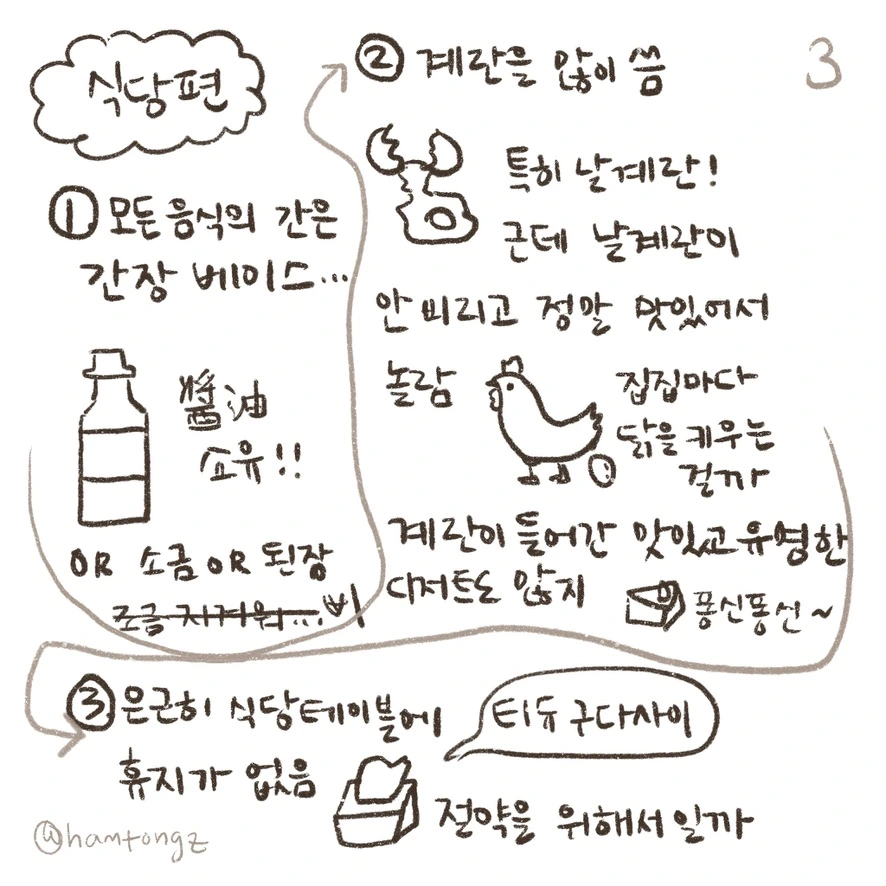 3
식당편
① 모든 음식의 간은
간장 베이스...
醬油
쇼유!!
OR 소금 OR 된장
조금 지겨워...삐
② 계란을 많이 씀
특히 날계란!
근데 날계란이
안 비리고 정말 맛있어서
놀람
집집마다
닭을 키우는
걸까
계란이 들어간 맛있고 유명한
디저트도 많지
퐁신퐁신~
③ 은근히 식당테이블에
휴지가 없음
티듀 구다사이
절약을 위해서일까
@hamtongz